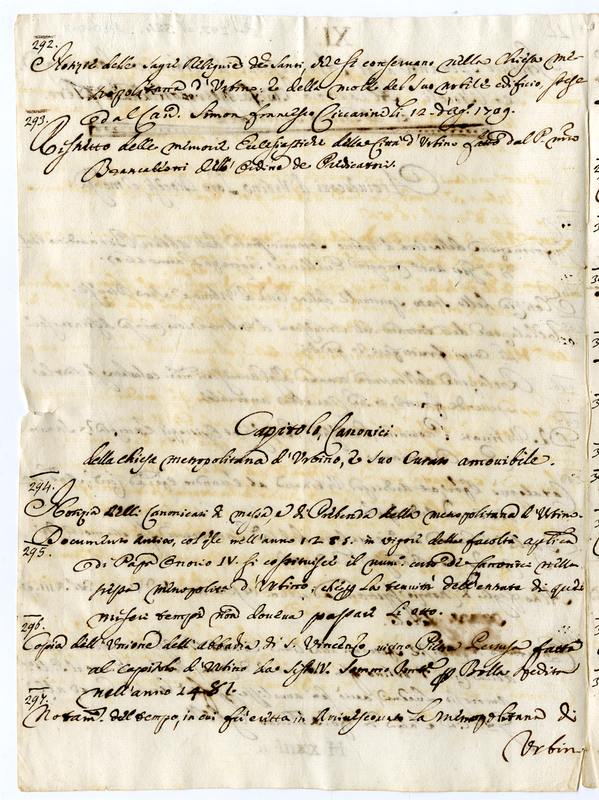 292.
Notizie delle Sagre Reliquie de Santi, che si conservano nella Chiesa me-
tropolitana d'Urbino, e della mole del suo nobile edificio, stese
293.
dal Can. Simon Francesco Ciccarini li 12. d'Ag. 1709.
Ristretto delle memorie Eclesiastiche della Città d'Urbino fatto dal P. mro
Brancaleoni dell' Ordine de Predicatori.
Capitolo, Canonici
della chiesa metropolitana d'Urbino, e suo Curato amovibile.
294.
Notizia delli Canonicati di massa, e di Prebenda della metropolitana d'Urbino.
Documento antico, col q.le nell'anno 1285. in vigore della facoltà aplica
295.
di Papa Onorio IV. si costituisce il num. certo de Canonici nella
stessa metropolita d'Urbino, che p la tenuità dell'entrate di quei
miseri tempi non doveva passare li otto.
296.
Copia dell'Unione dell'abbadia di S. Vincenzo vicino Pietra Pertusa fatta
al Capitolo d'Urbino da Sisto IV. Sommo Pont. p Bolla spedita
nell'anno 1481.
297.
Notam. del tempo, in cui fu eretta in Arcivescovato la Metropolitana di
Urbin